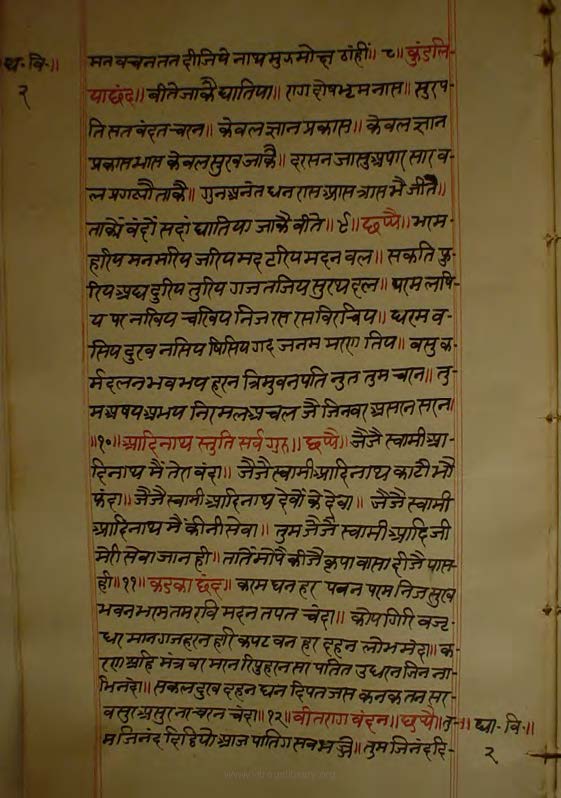 ध. वि.॥
२
मन वचन तन दीजिये नाथ मुऊ मोक्ष ठांहीं॥ ८॥ कुंडलि-
या छंद॥ बीते जाकै घातिया॥ राग दोष भ्रम नास॥ सुरप-
ति सत वंदत चरन॥ केवल ज्ञान प्रकास॥ केवल ज्ञान
प्रकास भास केवल सुख जाकै॥ दरसन जासु अपार सार व-
ल प्रगट्यौ ताकै॥ गुन अनंत घन रास आस त्रास भै जीतै॥
ताकौं वंदौं सदां घातिया जाकै वीते॥ ९॥ छप्पै॥ भरम
हरिय मन मरिय जरिय मद टरिय मदन वल॥ सकति फु-
रिय अघ दुरिय तुरिय गज तजिय सुरथ दल॥ परम लषि-
य पर नखिय चखिय निज रस रस विरचिय॥ धरम व-
सिय दुख नसिय षिसिय गद जनम मरण तिय॥ वसु क-
र्म दलन भव भय हरन त्रिभुवनपति नुत तुम चरन॥ तु-
म अषय अभय निरमल अचल जै जिनवर असरन सरन॥
॥१०॥ आदिनाथ स्तुति सर्व गुरु॥ छप्पै॥ जै जै स्वामी आ-
दिनाथ मैं तेरा वंदा॥ जै जै स्वामी आदिनाथ काटौ भौ
फंदा॥ जै जै स्वामी आदिनाथ देवों के देवा॥ जै जै स्वामी
आदिनाथ मैं कीनी सेवा॥ तुम जै जै स्वामी आदि जी
मेरी सेवा जान ही॥ तातैं मोपै कीजै कृपा वासा दीजै पास-
ही॥ ११॥ कडका छंद॥ करम घन हर पवन परम निज सुख
भवन भरम तम रवि मदन तपत चंदा॥ कोप गिरि वज्र
धर मान गज हरन हरि कपट वन हर दहन लोभ मंदा॥ क-
रण अहि मंत्र वर मरन रिपु हरन सर पतित उधरन जिन ना-
भिनंदा॥ सकल दुख दहन घन दिपत जास कनक तन सर-
व सुर असुर नर चरन चंदा॥ १२॥ वीतराग वंदन॥ छप्पै॥ तु-
म जिनंद दिट्ठियो आज पातिग सव भज्जे॥ तुम जिनंद दि-
ध्या. वि.॥
२